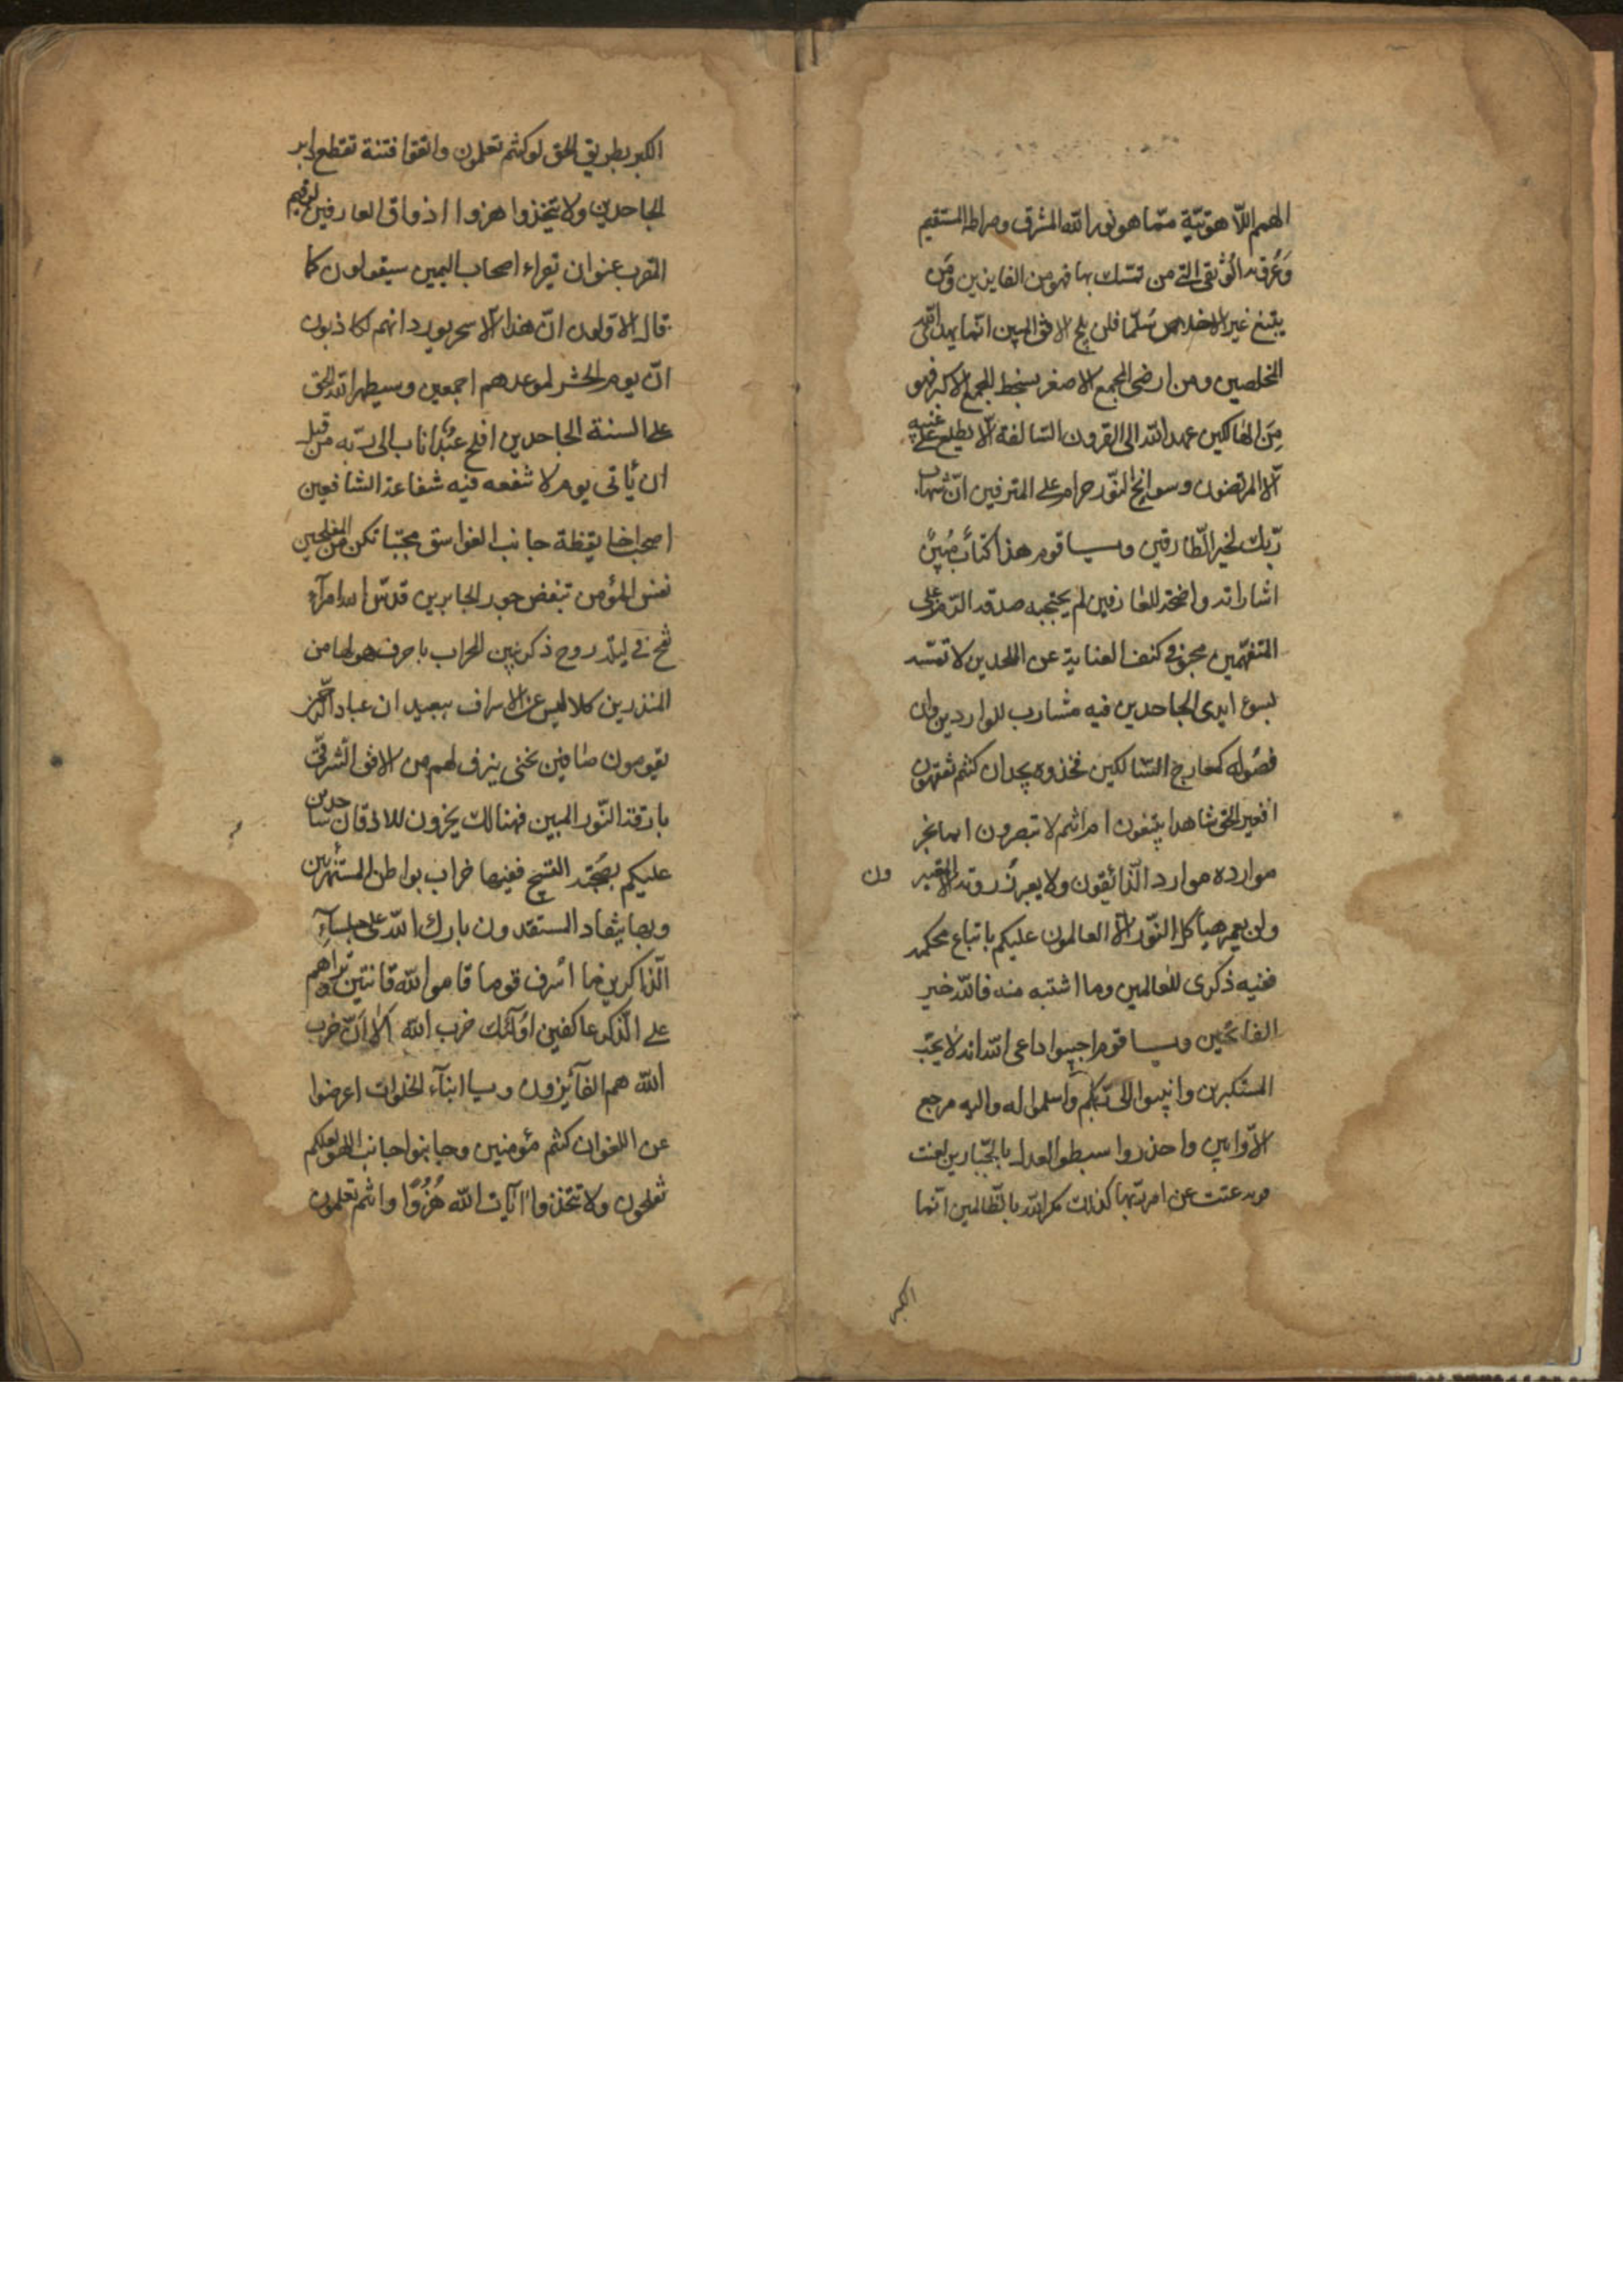 الهمم اللّاهوتيّة ممّا هو نور الله المشرق وصراط المستقيم
وَعُروته الوُثقى التي من تمسّك بها فهو من الفايزين ومَن
يبتغ غير الاخلاص سُلّما فلن يلج الافق المبين انّما يهدى الله
المخلصين ومن ارضى المجمع الاصغر بسخط المجمع الاكبر فهو
مِنَ الهالكين عهد الله الى القرون السّالفة ألّا يطلع على غيبه
الّا المرتضون وسوانح النّور حرام على المترفين انّ شهاب
ربّك لخير الطّارقين ويا قوم هذا كتابٌ مُبينٌ
اشاراته واضحة للعارفين لم يحتجبه صدقه الرّمز على
المتفهّمين محجز فى كنف العناية عن الملحدين لا تمسّه
لسوع ايدى الجاحدين فيه مشارب للواردين وان
فصُوله كمعارج السّالكين فخذوه بجد ان كنتم تفقهون
افغير الحق شاهدا يبتغون ام انتم لا تبصرون انما يخبر
موارده موارد الذّائقون ولا يعبر روقه الا المعتبرون
ولن يعمر هياكل النّور الّا العالمون عليكم باتباع محكمه
ففيه ذكرى للعالمين وما اشتبه منه فالله خير
الفاتحين ويا قوم اجيبوا داعى الله انه لا يحبّ
المستكبرين وانيبوا الى ربّكم واسلموا له واليه مرجع
الاوّابين واحذروا سطو العدل بالجبّارين لعنت
عتت عن امر ربّها كذلك مكر الله بالظّالمين انّما
الكبر
الكبر بطريق الحق لو كنتم تعلمون واتقوا فتنة تقطع دابر
الجاحدين ولا يتخذوا هزوا اذواق العارفين
القرب عنوان تبراء اصحاب اليمين سيقولون كما
قال الاوّلون انّ هذا الّا سحر يورد انهم لكاذبون
انّ يوم الحشر لموعدهم اجمعين وسيظهر الله الحق
على السنة الجاحدين افلح عبدٌ اناب الى ربّه من قبل
ان يأتى يوم لا تنفعه فيه شفاعة الشافعين
اصحب اخا يقظة جانب الغواسق مجتبا تكن من المفلحين
نفس المؤمن تبغض جور الجابرين قدّس الله امرآء
روح ذكر بين المحراب باحرف هو لها من
المنذرين كلا ليس عن الاسراف ببعيد ان عباد
يقومون صافين يزف لهم من الافق الشرقىّ
بارقة النّور المبين فهنالك يخرون للاذقان ساجدين
عليكم التسبيح ففيها خراب بواطن المستهزئين
وبها ينقاد المستقدون بارك الله على جلسآء
الذّاكرين فما اشرف قوما قاموا لله قانتين تراهم
على الذّكر عاكفين اولآئك حزب الله ألا انّ حزب
الله هم الفآئزون ويا ابنآء الخلوات اعرضوا
عن اللغو ان كنتم مؤمنين وجانبوا جانب اللهو لعلكم
تفلحون ولا تتخذوا آيات الله هُزُوًا وانتم تعلمون